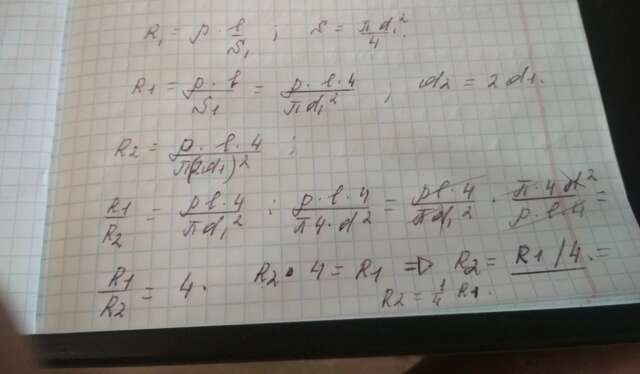 R₁ = ρ · l/S₁ ; S = πd₁²/4.
R1 = ρ · l/S1 = ρ · l · 4/πd₁² , d2 = 2d1.
R2 = ρ · l · 4/π(2d₁)² ;
R1/R2 = ρl · 4/πd₁² ; ρ · l · 4/π4 · d² = ρl · 4/πd₁² · π · 4d²/ρ · l · 4 =
R1/R2 = 4. R2 · 4 = R1 => R2 = R1/4. =
R2 = 1/4 R1.